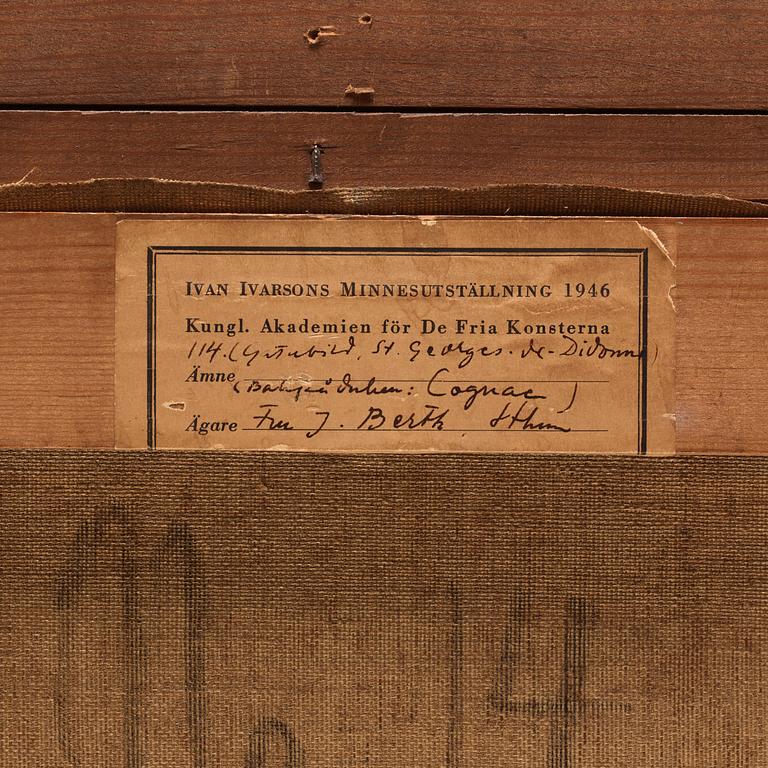 IVAN IVARSONS MINNESUTSTÄLLNING 1946
Kungl. Akademien för De Fria Konsterna
114. (Gatubild, St. Georges-de-Didonne)
Ämne (Baksidan: Cognac)
Ägare Fru J. Berth, Sthlm
No 14